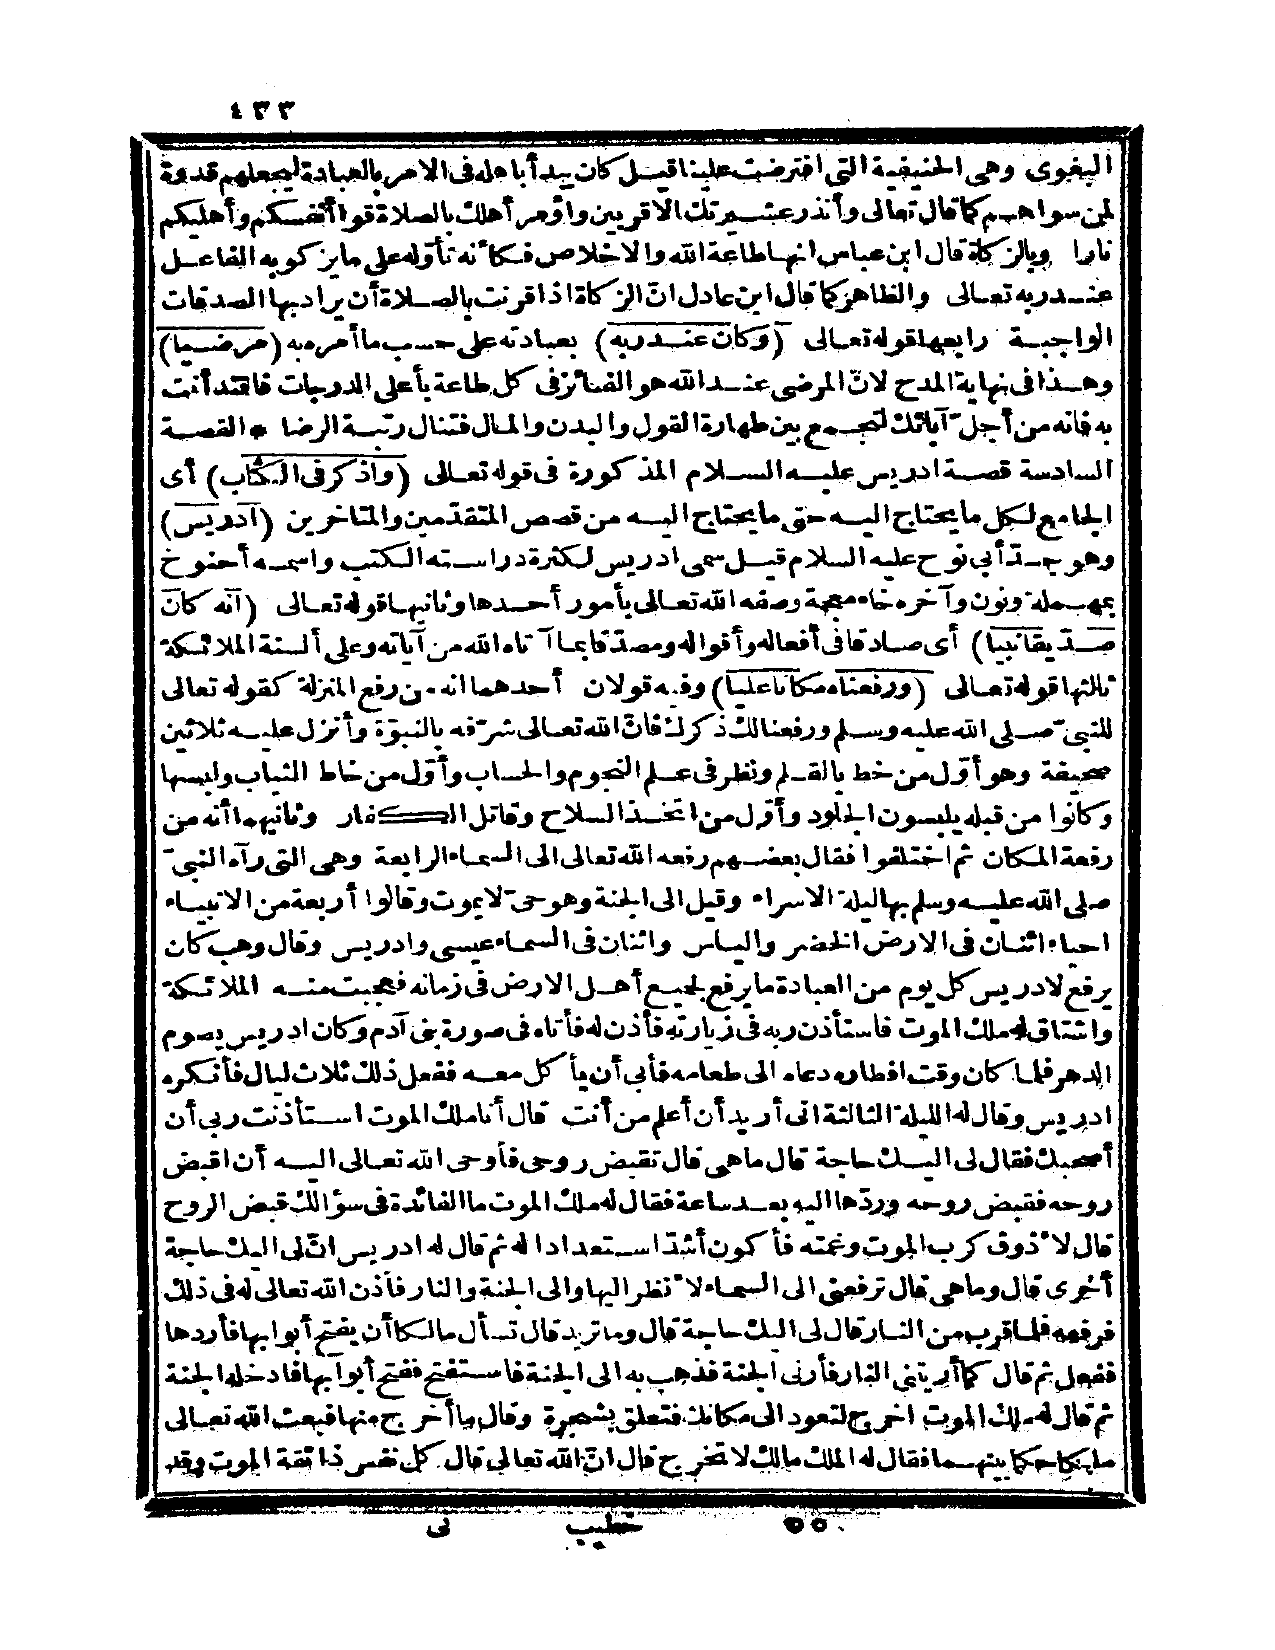 ٤٣٣
البغوى وهى الحنيفية التى افترضت علينا قيل كان يبدأ باهله فى الامر بالعبادة ليجعلهم قدوة
لمن سواهم كما قال تعالى وأنذر عشيرتك الاقربين وأؤمر أهلك بالصلاة قوا أنفسكم وأهليكم
نارا وبالزكاة قال ابن عباس انها طاعة الله والاخلاص فكا نه تأوله على ما يزكو به الفاعل
عند ربه تعالى والظاهر كما قال ابن عادل انّ الزكاة اذا قرنت بالصلاة أن يراد بها الصدقات
الواجبة رابعها قوله تعالى (وكان عند ربه) بعبادته على حسب ما أمره به (مرضيا)
وهذا فى نهاية المدح لانّ المرضى عند الله هو الفائز فى كل طاعة بأعلى الدرجات فاقتد أنت
به فانه من أجلّ آبائك لتجمع بين طهارة القول والبدن والمال فتنال رتبة الرضا * القصة
السادسة قصة ادريس عليه السلام المذكورة فى قوله تعالى (واذكر فى الكتاب) أى
الجامع لكل ما يحتاج اليه حتى ما يحتاج اليه من قصص المتقدّمين والمتأخرين (ادريس)
وهو جدّ أبى نوح عليه السلام قيل سمى ادريس لكثرة دراسته الكتب واسمه أخنوخ
بمهملة ونون وآخره خاء معجمة وصفه الله تعالى بأمور أحدها وثانيها قوله تعالى (انه كان
صدّيقا نبيا) أى صادقا فى أفعاله وأقواله ومصدّقا بما آتاه الله من آياته وعلى ألسنة الملائكة
ثالثها قوله تعالى (ورفعناه مكانا عليا) وفيه قولان أحدهما انه من رفع المنزلة كقوله تعالى
للنبىّ صلى الله عليه وسلم ورفعنا لك ذكرك فانّ الله تعالى شرّفه بالنبوّة وأنزل عليه ثلاثين
صحيفة وهو أوّل من خط بالقلم ونظر فى علم النجوم والحساب وأوّل من خاط الثياب ولبسها
وكانوا من قبله يلبسون الجلود وأوّل من اتخذ السلاح وقاتل الكفار وثانيهما أنه من
رفعة المكان ثم اختلفوا فقال بعضهم رفعه الله تعالى الى السماء الرابعة وهى التى رآه النبىّ
صلى الله عليه وسلم بها ليلة الاسراء وقيل الى الجنة وهو حىّ لا يموت وقالوا أربعة من الانبياء
احياء اثنان فى الارض الخضر والياس واثنان فى السماء عيسى وادريس وقال وهب كان
يرفع لادريس كل يوم من العبادة ما يرفع لجميع أهل الارض فى زمانه فعجبت منه الملائكة
واشتاق له ملك الموت فاستأذن ربه فى زيارته فأذن له فأتاه فى صورة بنى آدم وكان ادريس يصوم
الدهر فلما كان وقت افطاره دعاه الى طعامه فأبى أن يأكل معه ففعل ذلك ثلاث ليال فأنكره
ادريس وقال له الليلة الثالثة انى أريد أن أعلم من أنت قال أنا ملك الموت استأذنت ربى أن
أصحبك فقال لى اليك حاجة قال ما هى قال تقبض روحى فأوحى الله تعالى اليه أن اقبض
روحه فقبض روحه وردّها اليه بعد ساعة فقال له ملك الموت ما الفائدة فى سؤالك قبض الروح
قال لا ذوق كرب الموت وغمته فأكون أشدّ استعدادا له ثم قال له ادريس انّ لى اليك حاجة
أخرى قال وما هى قال ترفعنى الى السماء لا نظر اليها والى الجنة والنار فأذن الله تعالى له فى ذلك
فرفعه فلما قرب من النار قال لى اليك حاجة قال وما تريد قال تسأل مالكا أن يفتح أبوابها فأردها
ففعل ثم قال كما أريتنى النار فأرنى الجنة فذهب به الى الجنة فاستفتح ففتح أبوابها فادخله الجنة
ثم قال له ملك الموت اخرج لتعود الى مكانك فتعلق بشجرة وقال ما أخرج منها فبعث الله تعالى
ملكا حكما بينهما فقال له الملك مالك لا تخرج قال انّ الله تعالى قال كل نفس ذائقة الموت وقد
٥٥ خطيب نى